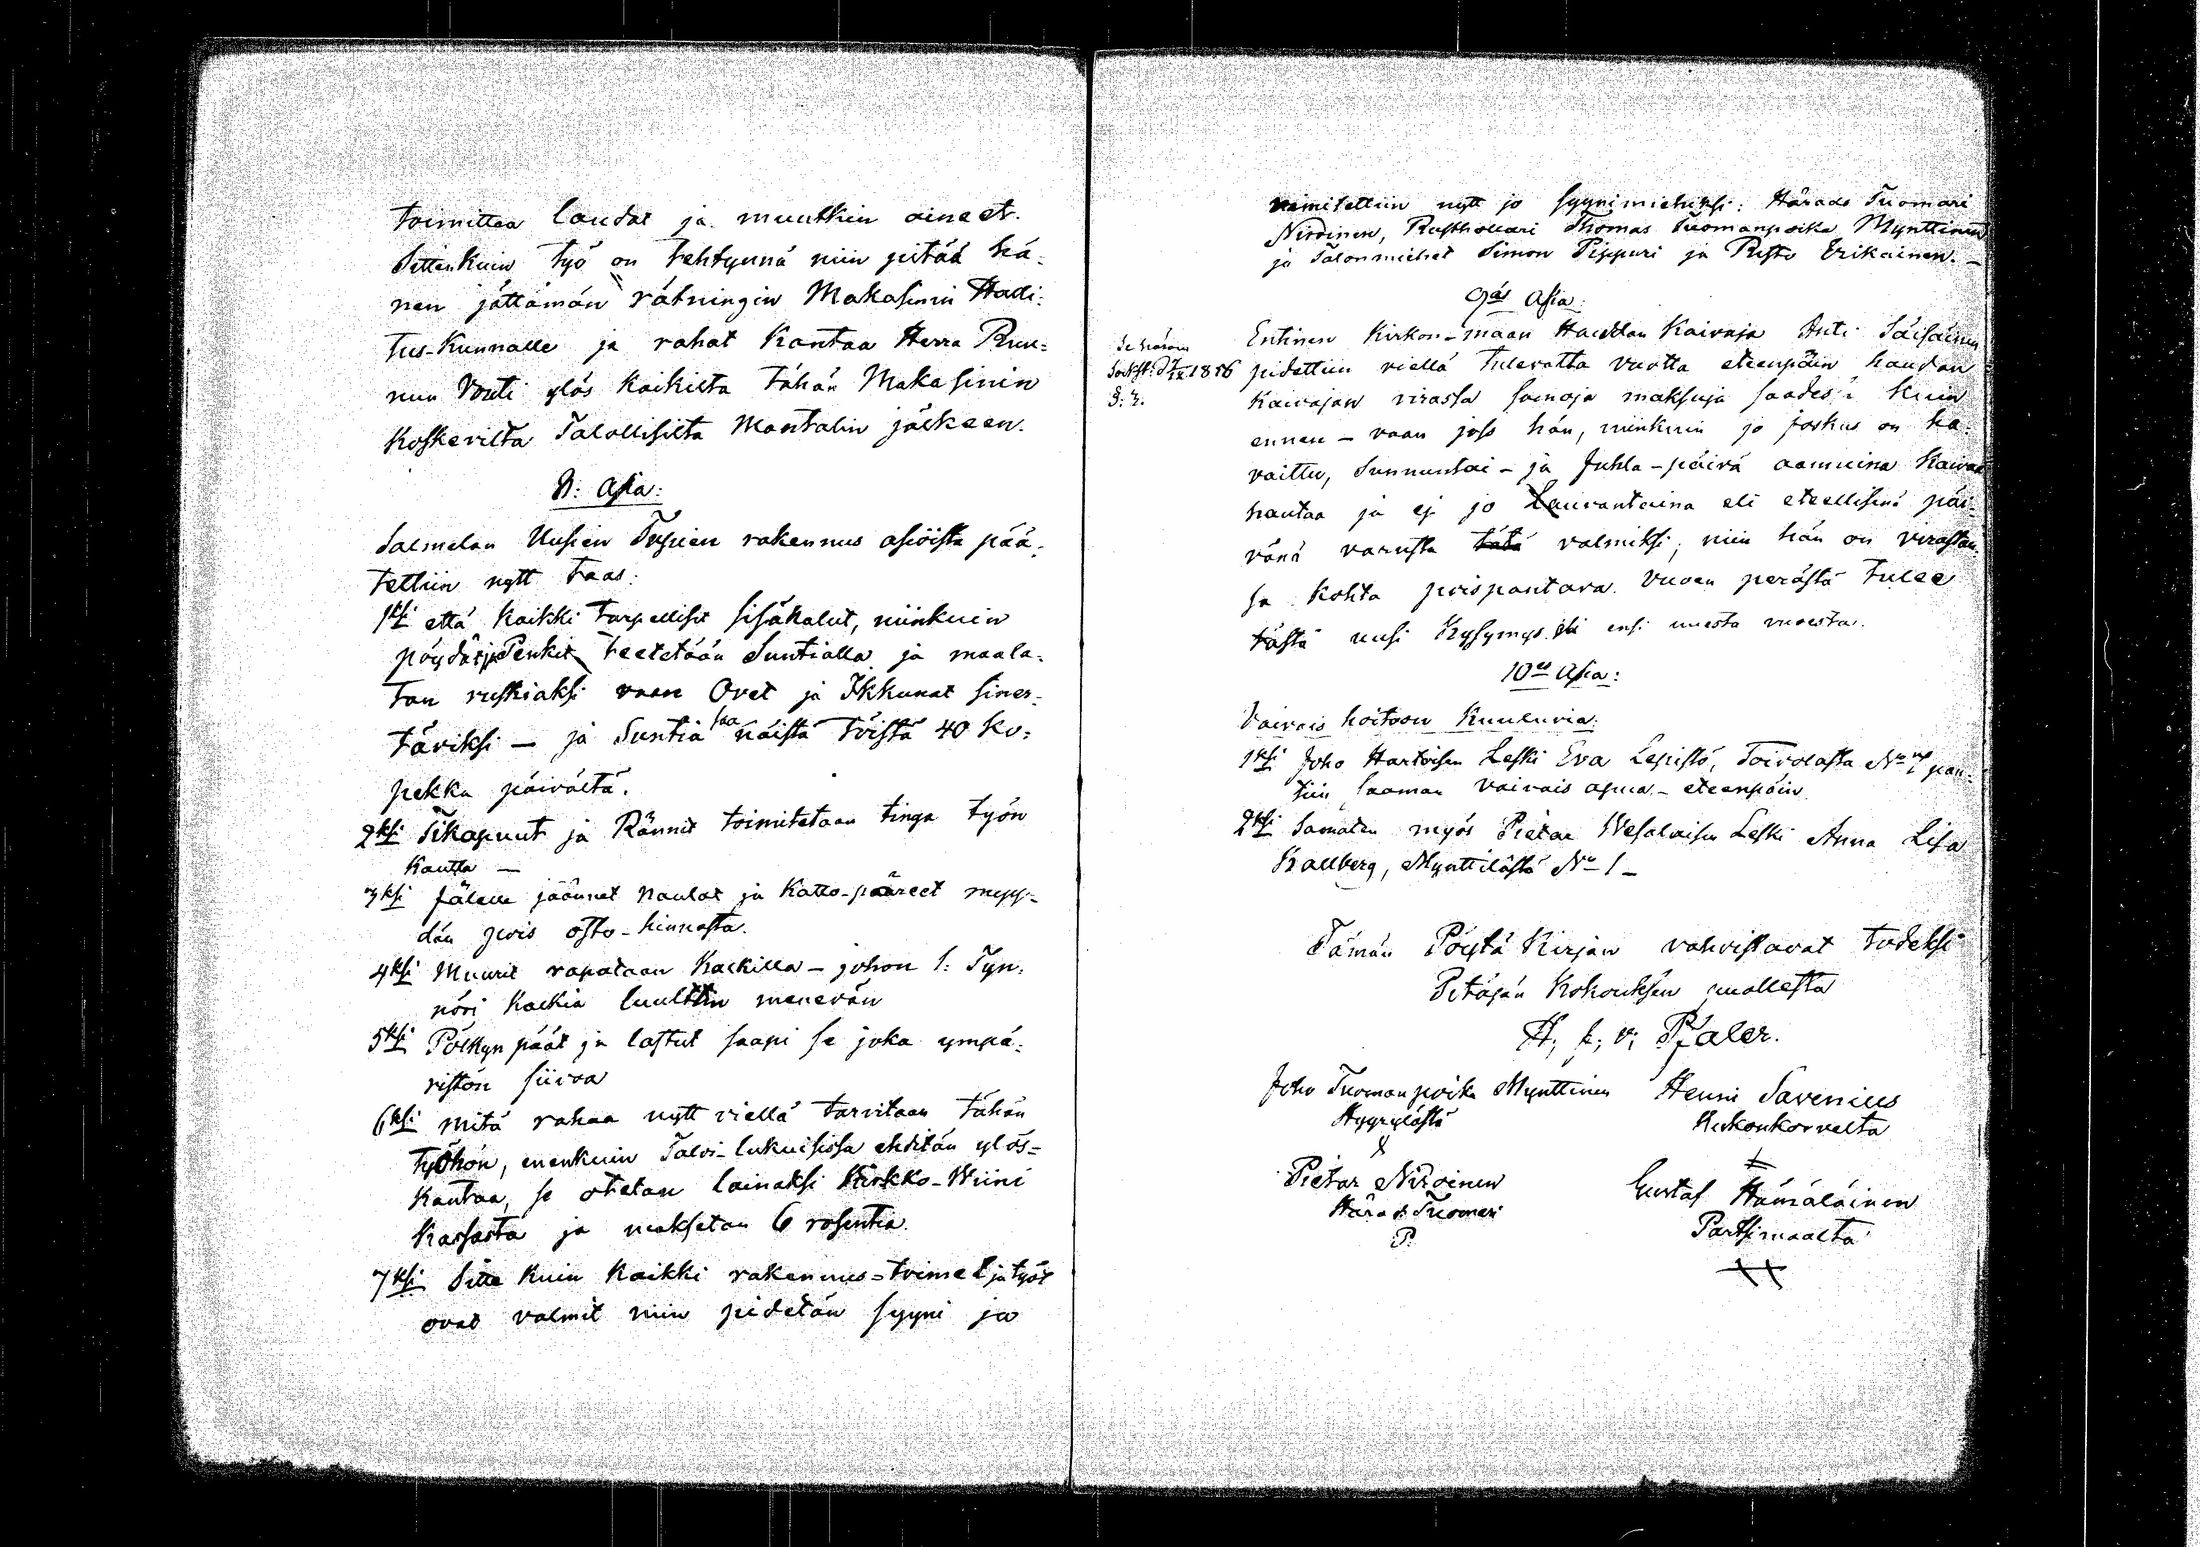 toimittaa laudat ja muutkin aineet.
Sittenkuin työ on tehtynnä niin pitää hä-
nen jättämän rätningin Makasinin Hadi-
tus-Kunnalle ja rahat Kantaa Herra Ruu-
nun Vouti ylös kaikilta tähän Makasinin
koskevilta Talollisilta Mantalin jälkeen.
8: Asia:
Salmelan Uusien Tupien rakennus asiöista pää-
tettiin nytt taas:
1ksi että kaikki tarpelliset sisäkalut, niinkuin
pöydät ja Penkit teetetään Suntialla ja maala-
tan ruskiaksi vaan Ovet ja Ikkunat siner-
täviksi — ja Suntia saa näistä töistä 40 ko-
pekka päivältä.
2ksi Tikapuut ja Rännit toimitetaan tinga työn
kautta —
3ksi Jälelle jäännet naulat ja Katto-päreet myy-
dän pois osto-hinnasta.
4ksi Muurit rapataan Kalkilla – johon 1: Tyn-
nöri kalkia luultiin menevän
5ksi Pölkyn päät ja lastut saapi se joka ympä-
ristön siivoa
6ksi mitä rahaa nytt viellä tarvitaan tähän
työhön, enenkuin Talvi-lukuisissa ehditän ylös-
kantaa, se otetan lainaksi Kirkko-Wiini
kassasta ja maksetan 6 rosentia.
7ksi Sitte kuin kaikki rakennus-toimet ja työt
ovat valmit niin pidetän syyni ja
nimitettiin nytt jo syynimiehiksi: Härads Tuomari
Nironen, Rusthollari Thomas Tuomanpoika Mynttinen
ja Talonmiehet Simon Pippuri ja Risto Erikainen. –
9äs Asia:
Entinen Kirkon-maan Haudan Kaivaja Anti Säisäinen
Se härom
1856 pidettiin viellä tulevatta vuotta eteenpäin haudan
§. 3.
kaivajan virassa samoja maksuja saades kuin
ennen – vaan joss hän, niinkuin jo joskus on ha-
vaittu, Sunnuntai- ja Juhla-päivä aamuina kaivaa
hautaa ja ej jo Lauvantaina eli eteellisenä päi-
vänä varusta tätä valmiksi, niin hän on virastan-
sa kohta poispantava. Vuoen perästä tulee
tästä uusi Kysymys eli ensi uuesta vuoesta.
10es Asia:
Vaivais hoitoon Kuuluvia:
1ksi Joho Hartoisen Leski Eva Lepistö, Toivolasta No pan-
tiin saaman vaivais apua – eteenpäin
2ksi Samaten myös Pietar Wesalaisen Leski Anna Lisa
Kallberg, Mynttilästä No 1 –
Tämän Pöytä Kirjan vahvistavat todeksi
Pitäjän Kokouksen puollesta
H. k. v. Pfaler.
Joho Tuomanpoika Mynttinen Henni Savenius
Hyyrylästä Hirkonkorvelta
Pietar Niroinen Gustaf Hämäläinen
Härads Tuomari Partsimaalta
P.